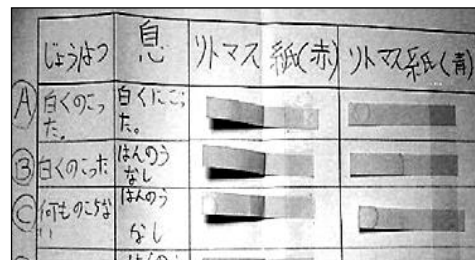 じょうはつ 息 リトマス紙(赤) リトマス紙(青)
A 白くのこった。 白くにごった。
B 白くのこった はんのうなし
C 何ものこらない はんのうなし